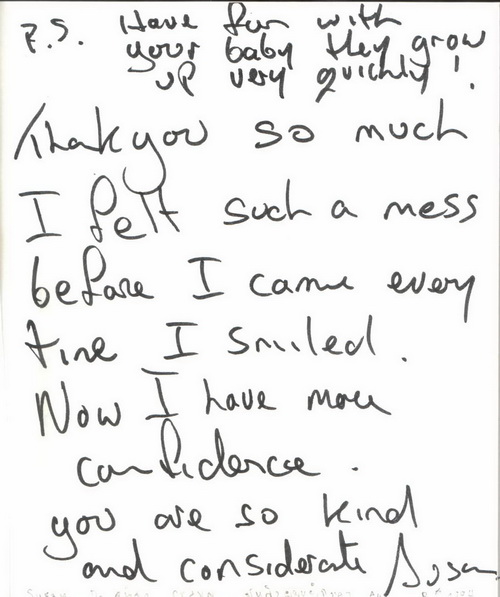 P.S. Have fun with
your baby they grow
up very quickly!
Thank you so much
I felt such a mess
before I came every
time I smiled.
Now I have more
confidence.
you are so kind
and considerate Susan